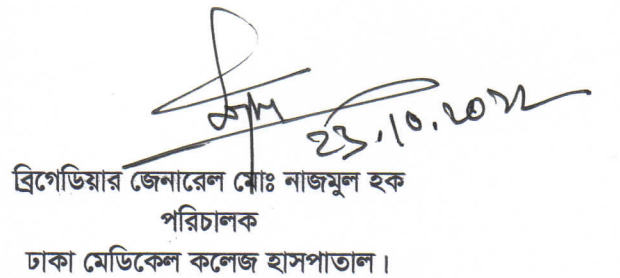 23.10.2022
ব্রিগেডিয়ার জেনারেল মোঃ নাজমুল হক
পরিচালক
ঢাকা মেডিকেল কলেজ হাসপাতাল।